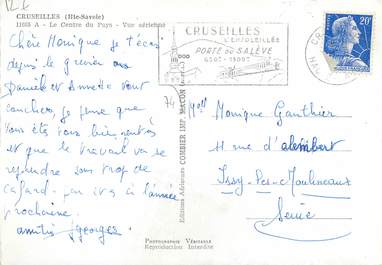 CRUSEILLES (Hte-Savoie)
11035 A - Le Centre du Pays - Vue aérienne
Chère Monique je t'écris
depuis le grenier où
Danièl et Annette vont
coucher, je pense que
vous êtes tous bien rentrés
et que le travail va se
reprendre sans trop de
cafard
l'année
prochaine.
amitiés Georges
74
Editions Aériennes COMBIER IMP. MACON
CRUSEILLES
L'ENSOLEILLÉE
PORTE DU SALÈVE
20F
Melle Monique Gauthier
11 rue d'alembert
Issy-les-Moulineaux
Seine
PHOTOGRAPHIE VÉRITABLE
Reproduction Interdite